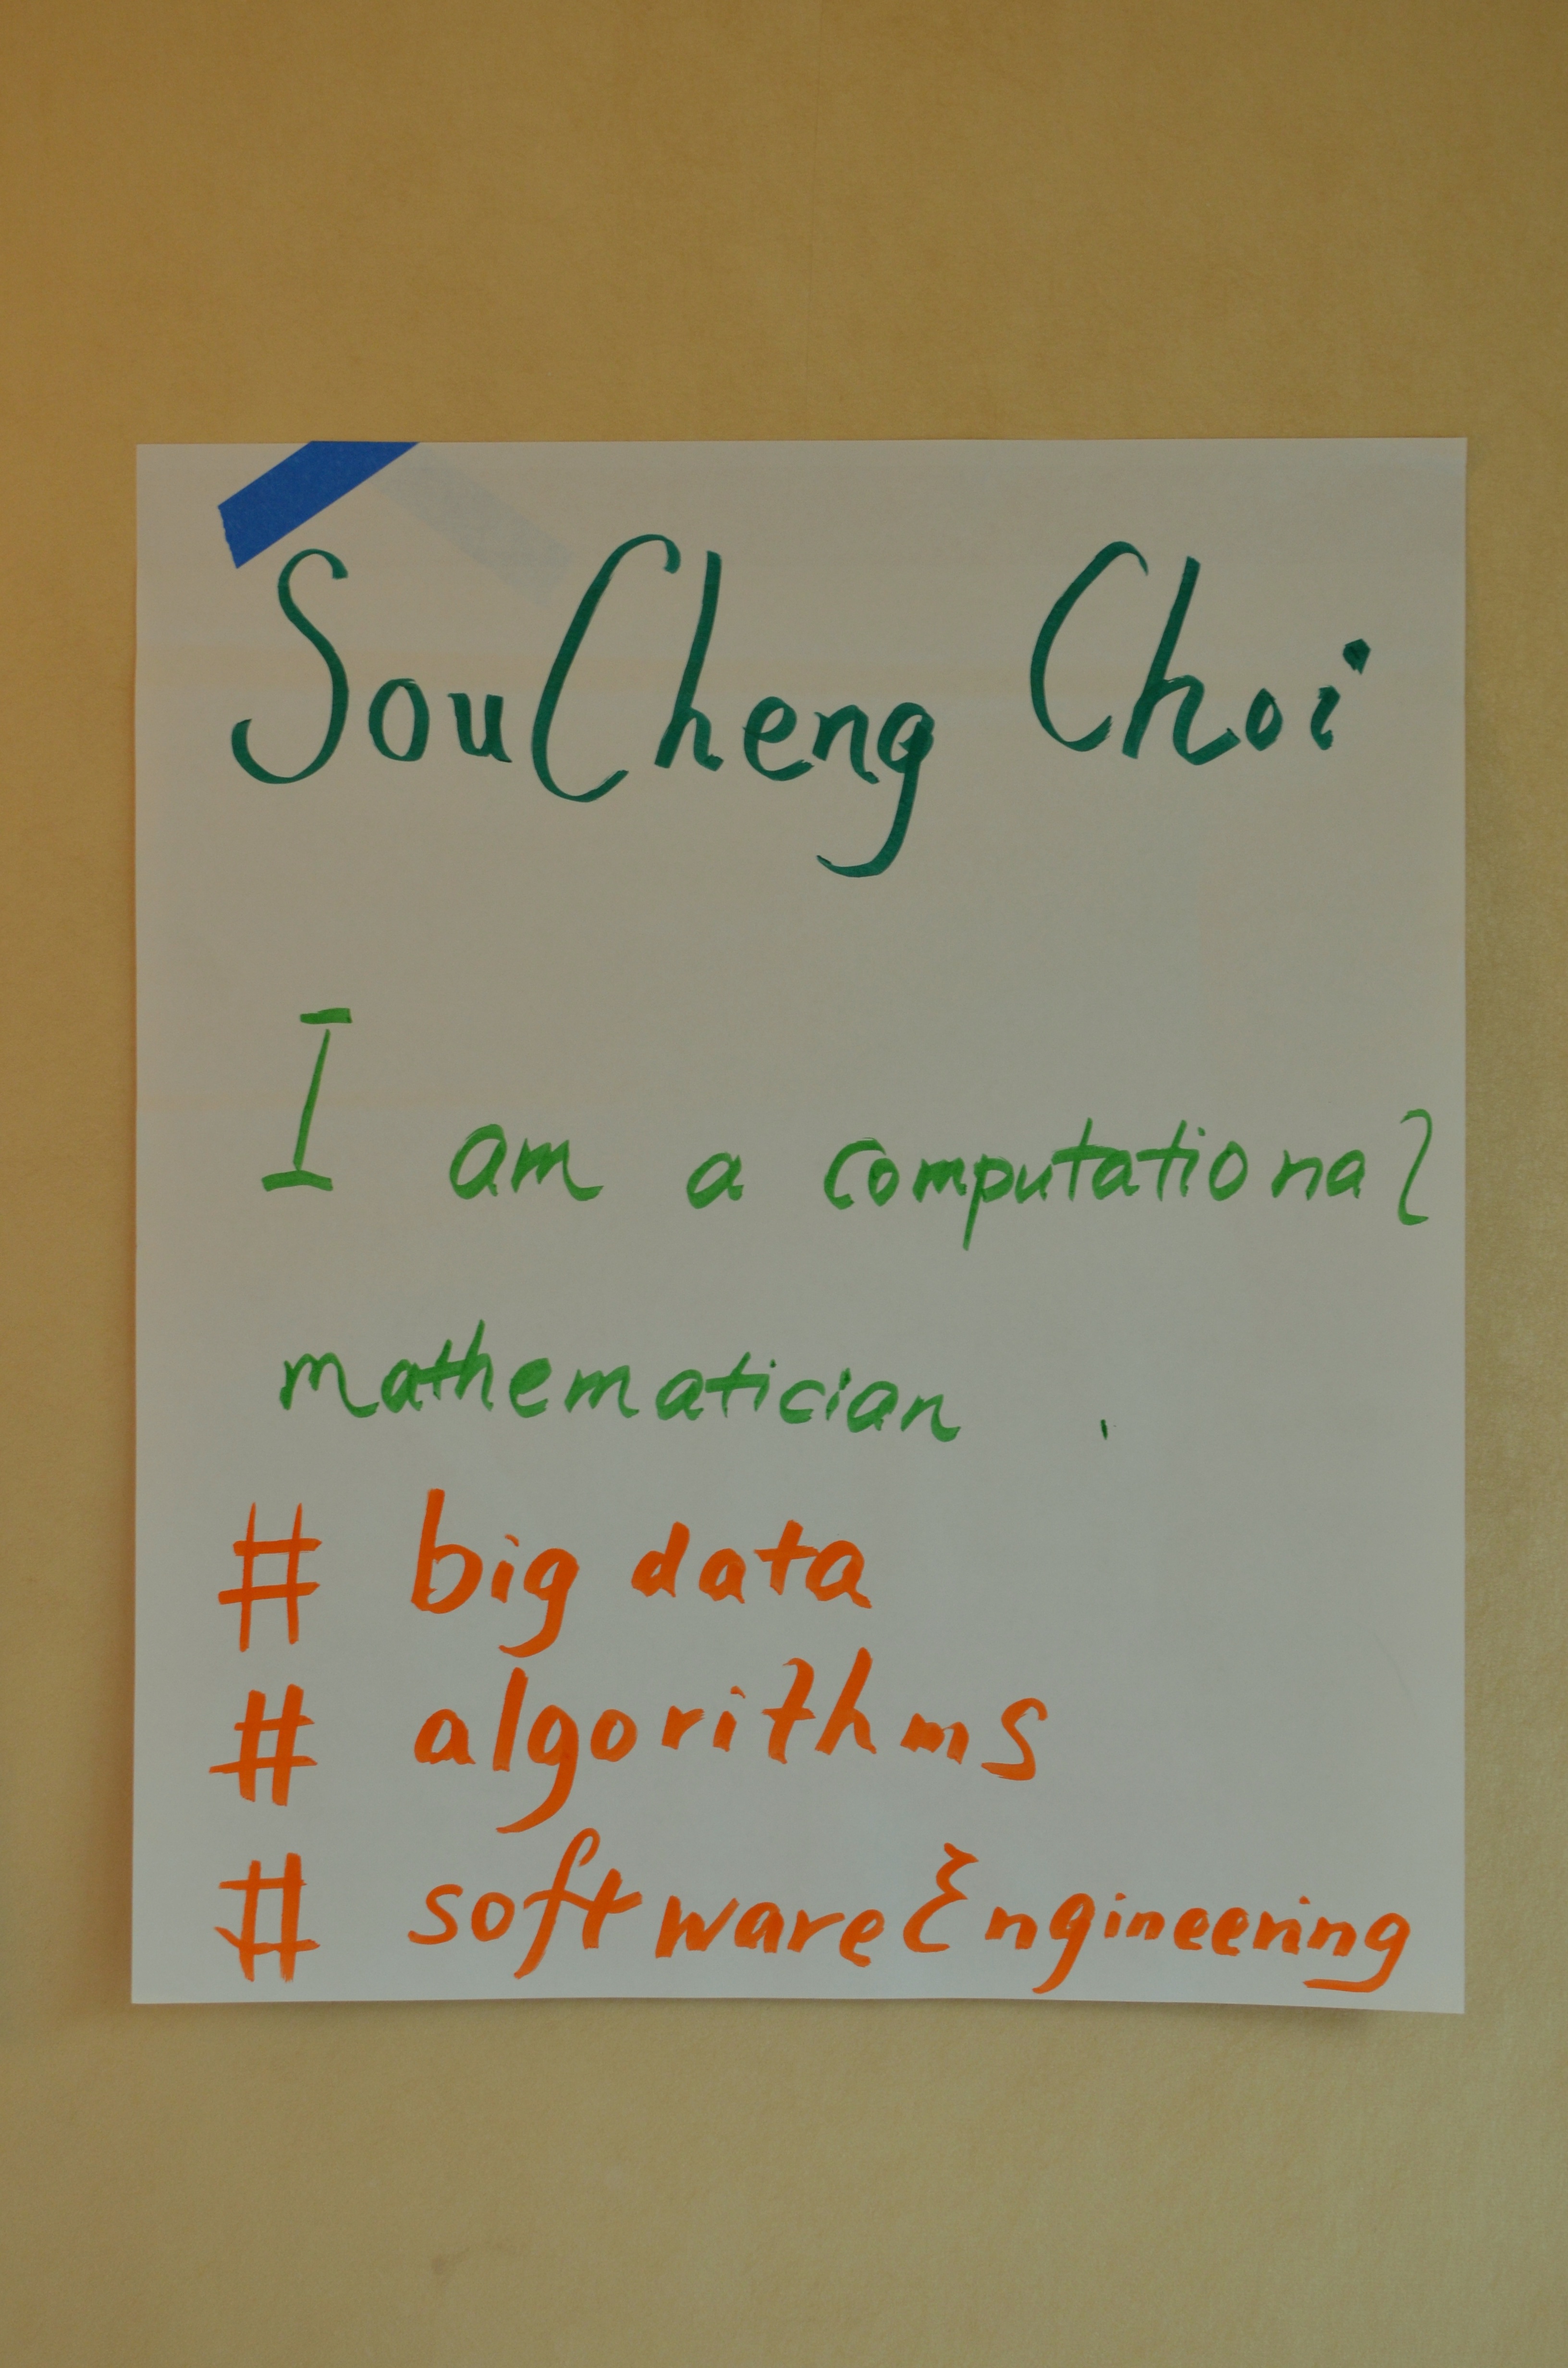 SouCheng Choi
I am a computational
mathematician .
# big data
# algorithms
# softwareEngineering